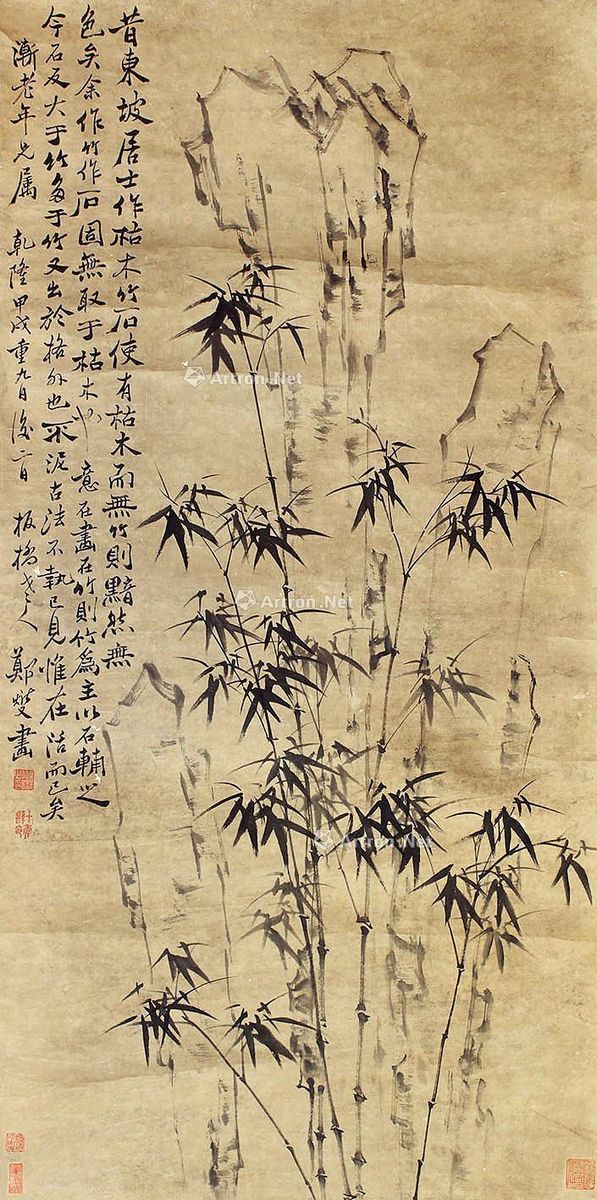 昔東坡居士作枯木竹石使有枯木而無竹則黯然無
色矣余作竹作石固無取于枯木也意在畫在竹則竹為主以石輔之
今石反大于竹多于竹又出於格外也不泥古法不執己見惟在活而已矣
漸老年兄屬 乾隆甲戌重九日後二日 板橋老人鄭燮畫
Artron.Net
Artron.Net
Artron.Net